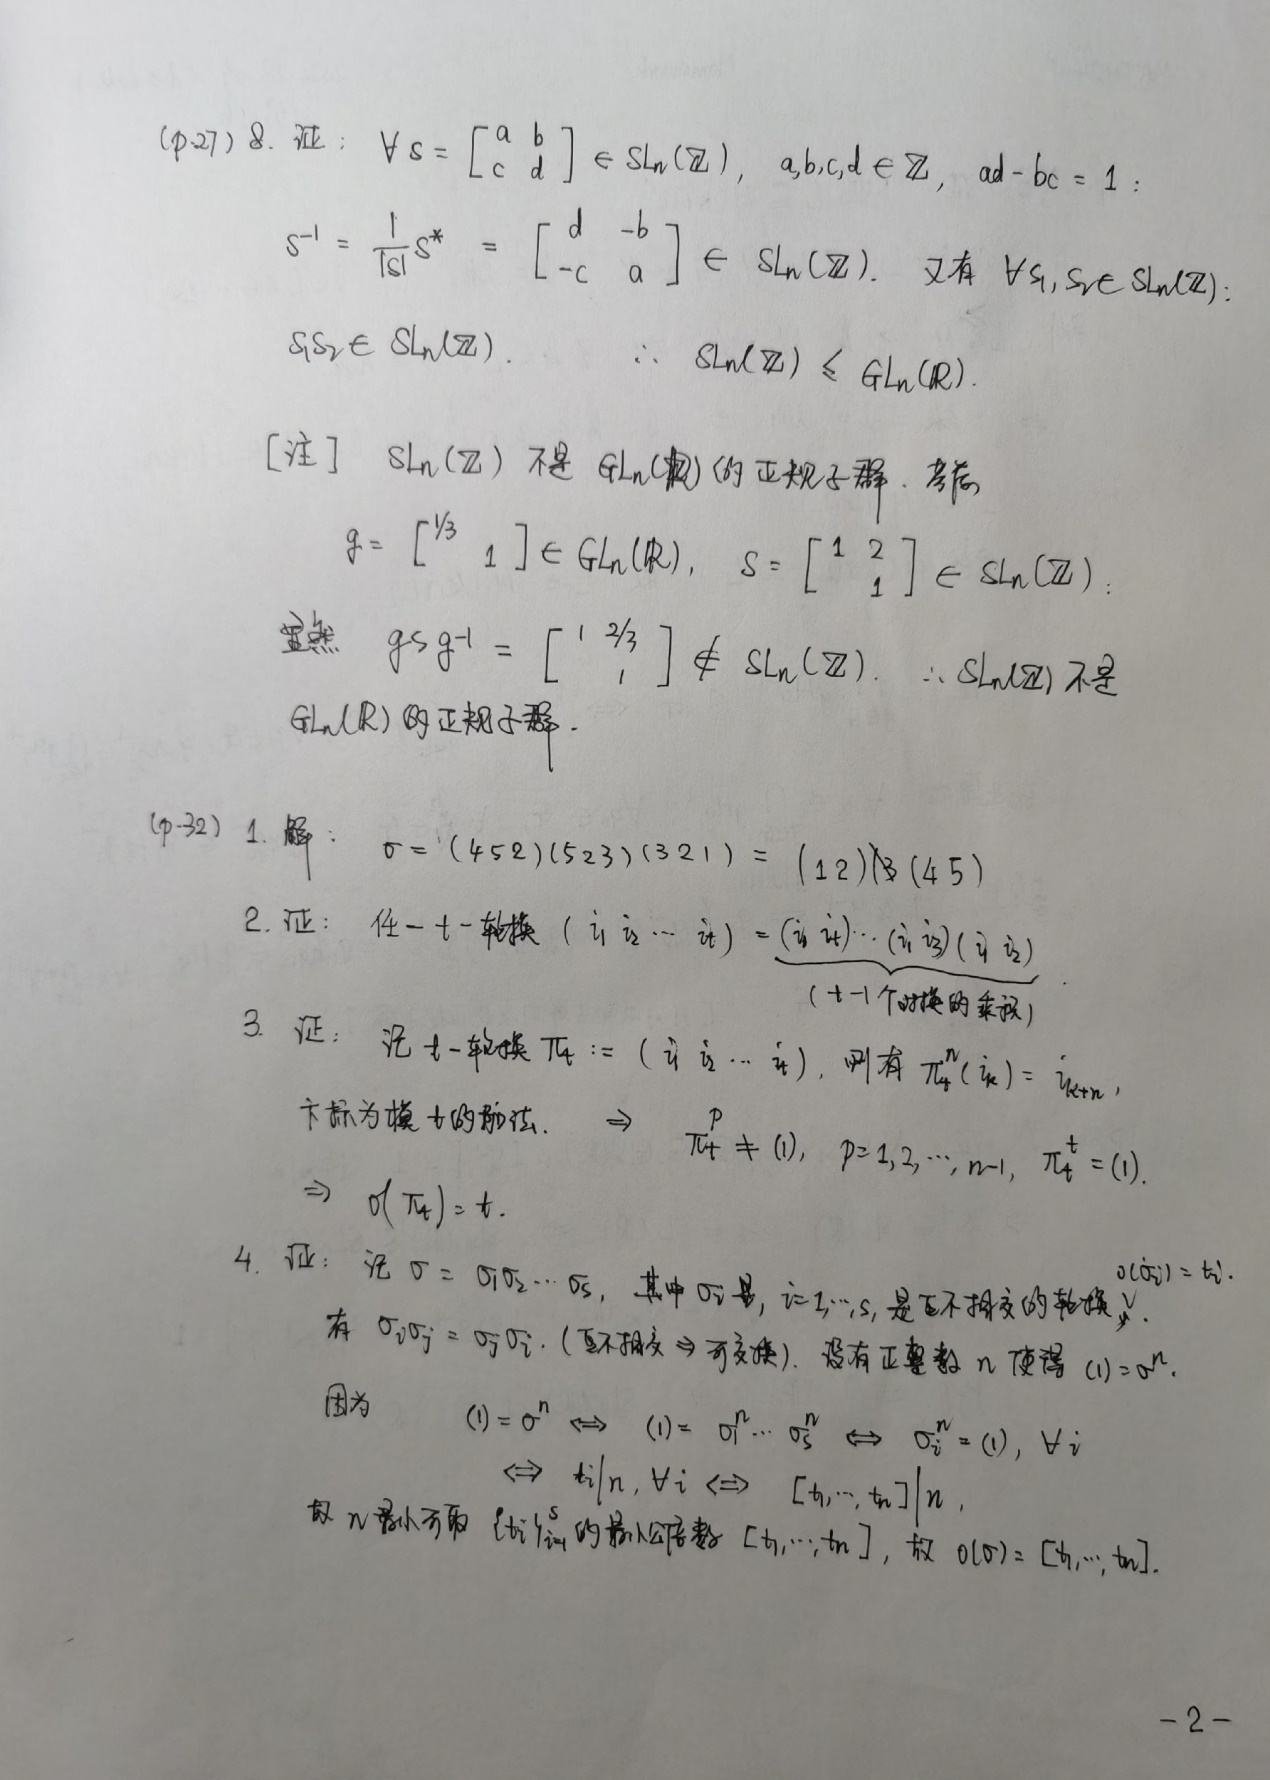 (p.27) 8. 证: ∀ s = [a b; c d] ∈ SLn(ℤ), a,b,c,d ∈ ℤ, ad - bc = 1 :
s⁻¹ = 1/|s| s* = [d -b; -c a] ∈ SLn(ℤ). 又有 ∀ s₁, s₂ ∈ SLn(ℤ):
s₁s₂ ∈ SLn(ℤ). ∴ SLn(ℤ) ≤ GLn(ℝ).
[注] SLn(ℤ) 不是 GLn(ℝ) 的正规子群. 考虑
g = [1/3 ; 1] ∈ GLn(ℝ), s = [1 2; 1] ∈ SLn(ℤ).
显然 gsg⁻¹ = [1 2/3; 1] ∉ SLn(ℤ). ∴ SLn(ℤ) 不是
GLn(ℝ) 的正规子群.
(p.32) 1. 解: σ = (452)(523)(321) = (12)(45)
2. 证: 任一 t-轮换 (i₁ i₂ ⋯ iₜ) = (i₁ iₜ)⋯(i₁ i₃)(i₁ i₂)
(t-1个对换的乘积)
3. 证: 记 t-轮换 πₜ := (i₁ i₂ ⋯ iₜ), 则有 πₜⁿ(iₖ) = iₖ₊ₙ,
下标为模 t 的加法. ⇒ πₜᵖ ≠ (1), p=1,2,⋯,n-1, πₜᵗ = (1).
⇒ o(πₜ) = t.
4. 证: 记 σ = σ₁σ₂⋯σₛ, 其中 σᵢ, i=1,⋯,s, 是互不相交的轮换, o(σᵢ) = tᵢ.
有 σᵢσⱼ = σⱼσᵢ. (互不相交 ⇒ 可交换). 设有正整数 n 使得 (1)=σⁿ.
因为 (1) = σⁿ ⇔ (1) = σ₁ⁿ⋯σₛⁿ ⇔ σᵢⁿ = (1), ∀ i
⇔ tᵢ|n, ∀ i ⇔ [t₁,⋯,tₙ]|n,
故 n 最小可取 {tᵢ}ˢᵢ₌₁ 的最小公倍数 [t₁,⋯,tₙ], 故 o(σ) = [t₁,⋯,tₙ].
-2-